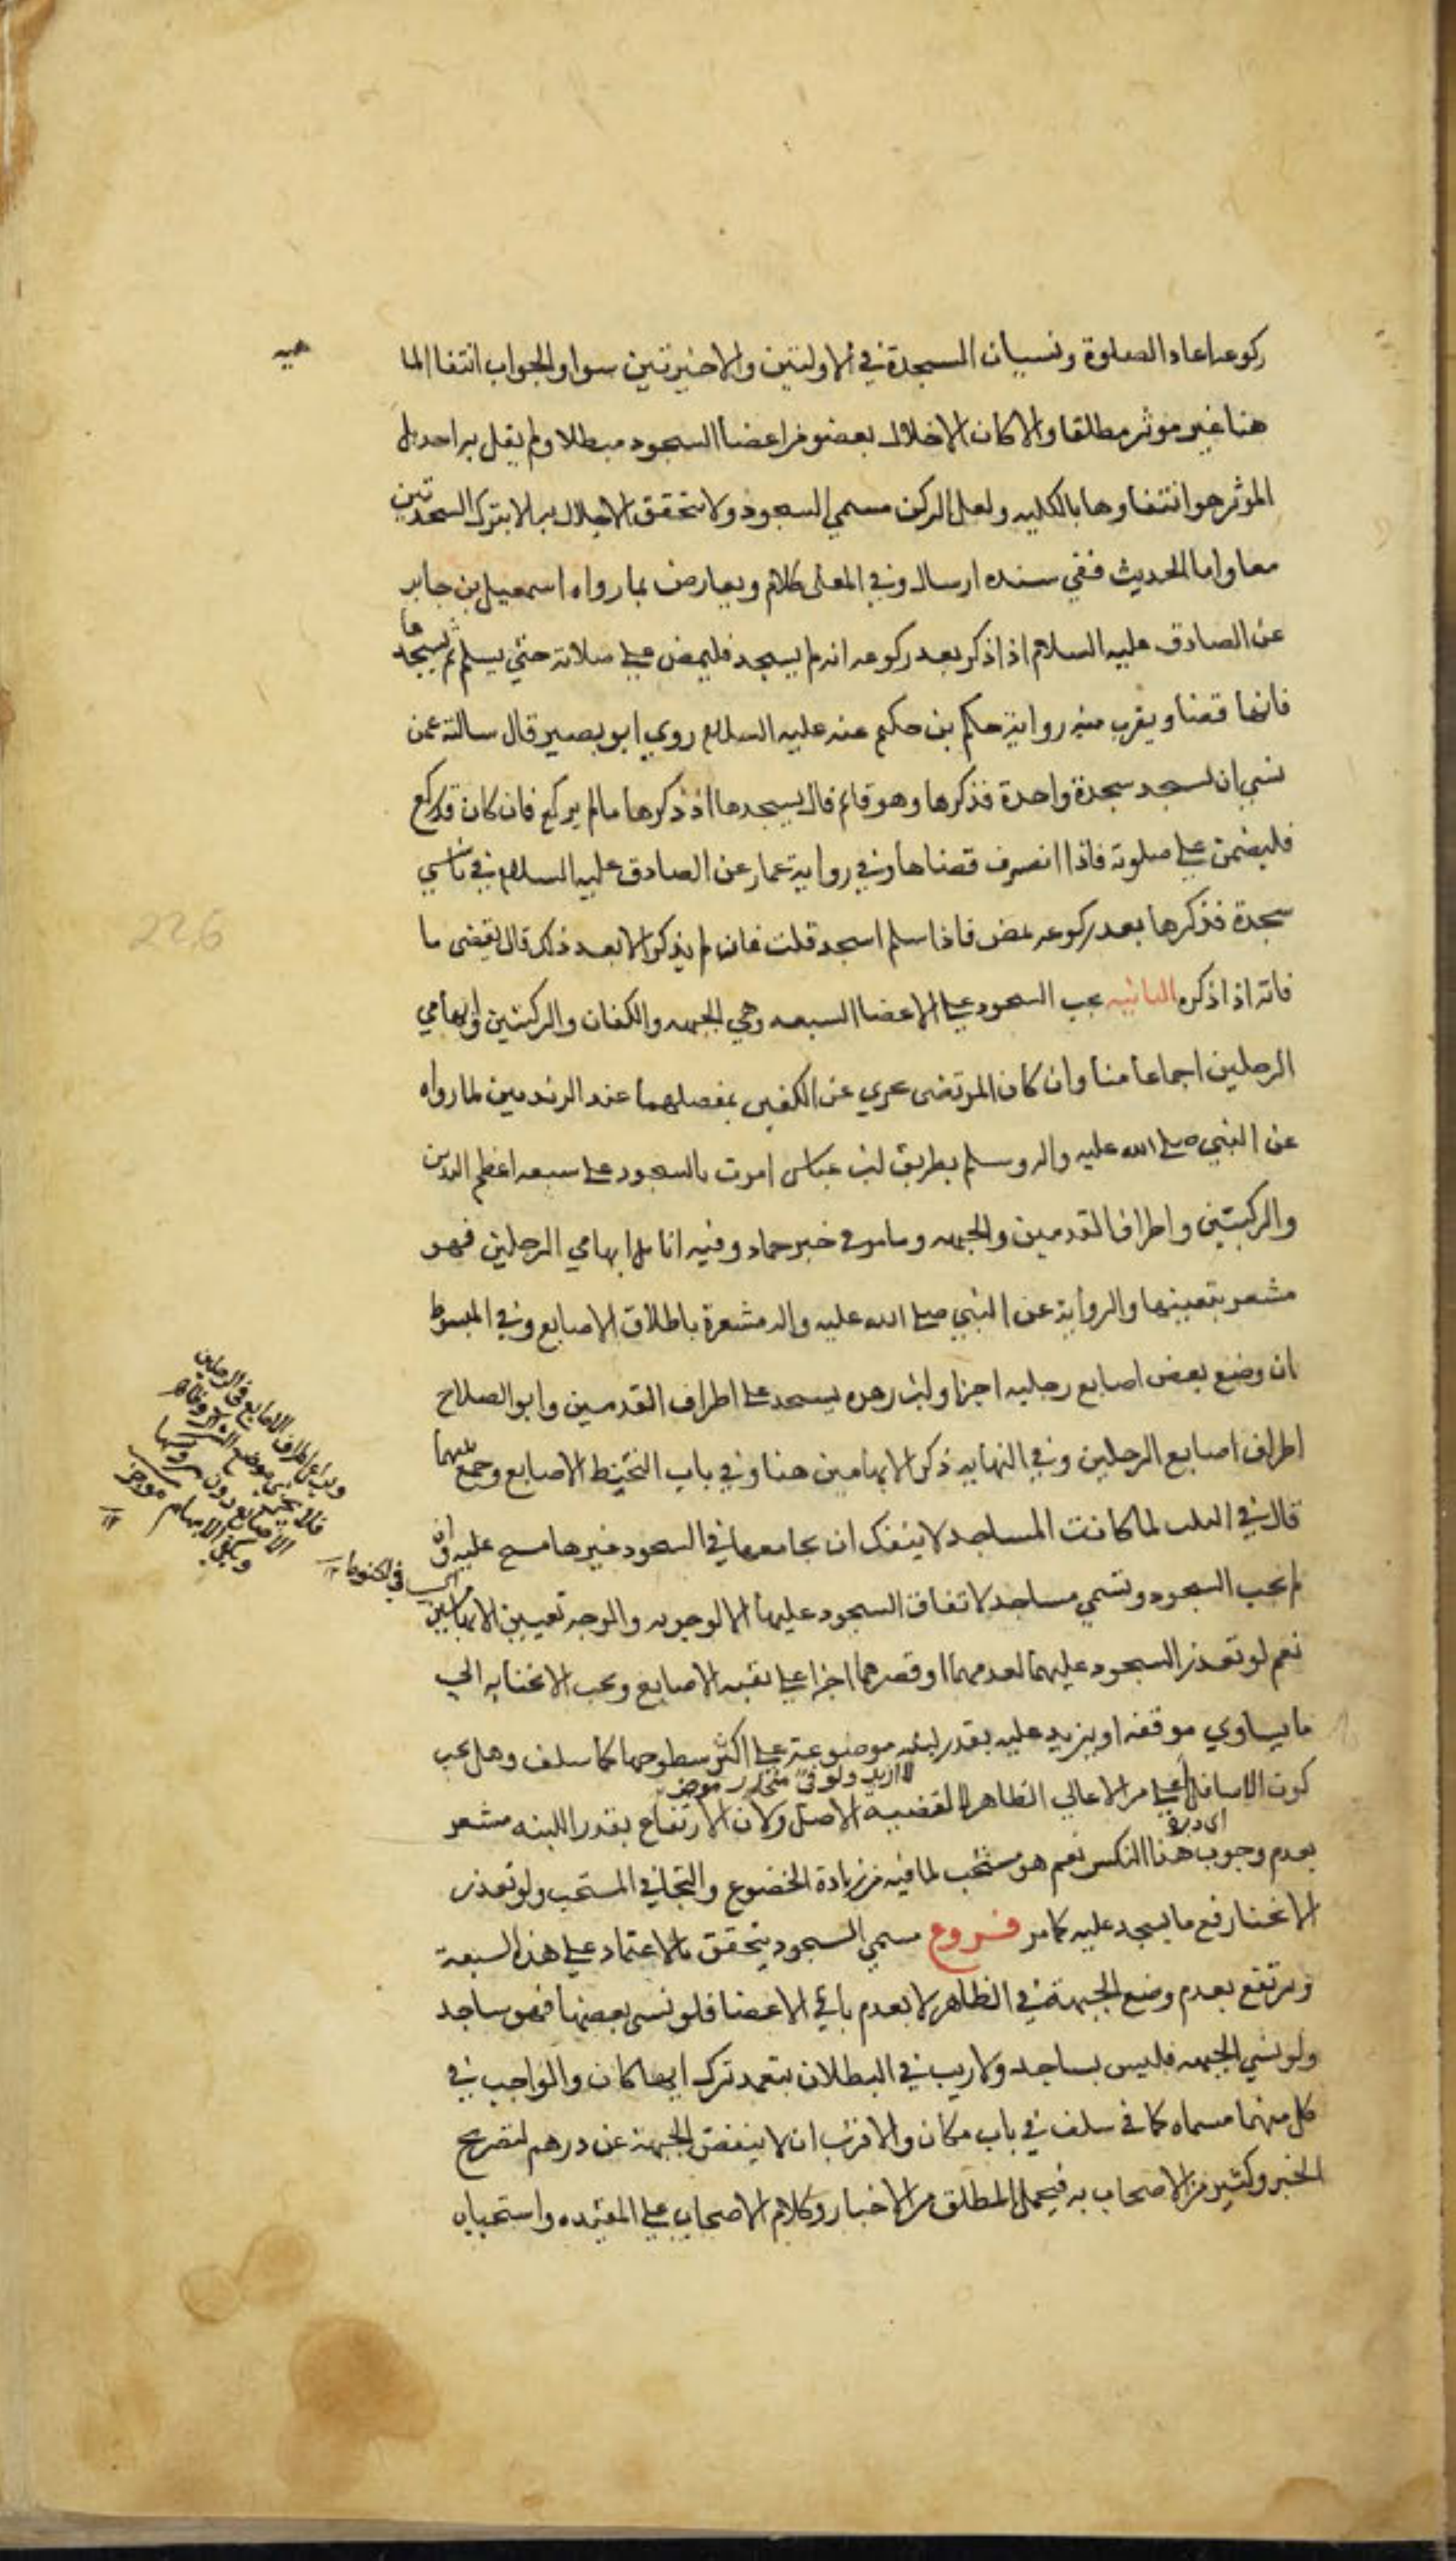 ركوعه اعاد الصلوة ونسيان السجدة في الاولتين والاخيرتين سوا والجواب انتفا الما
هيه
هنا غير موثر مطلقا والا كان الاخلال بعضو من اعضا السجود مبطلا ولم يقل به احد بل
الموثر هو انتفاوها بالكليه ولعل الركن مسمي السجود ولا يتحقق الاخلال به الا بترك السجدتين
معا واما الحديث ففي سنده ارسال وفي المعلى كلام ويعارض بما رواه اسمعيل بن جابر
عن الصادق عليه السلام اذا ذكر بعد ركوعه انه لم يسجد فليمض علي صلاته حتي يسلم ثم يسجدها
فانها قضا ويقرب منه رواية حكم بن حكيم عنه عليه السلام روي ابو بصير قال سالته عمن
نسي ان يسجد سجدة واحدة فذكرها وهو قائم قال يسجدها اذا ذكرها ما لم يركع فان كان قد ركع
فليمض علي صلوته فاذا انصرف قضاها وفي رواية عمار عن الصادق عليه السلام في ناسي
سجدة فذكرها بعد ركوعه يمض فاذا سلم اسجد قلت فان لم يذكر الا بعد ذلك قال يقضى ما
226
فاته اذا ذكره الثانيه يجب السجود علي الاعضا السبعه وهي الجبهه والكفان والركبتين وابهامي
الرجلين اجماعا منا وان كان المرتضى عري عن الكفين بمفصلهما عند الزندين لما رواه
عن النبي صلي الله عليه واله وسلم بطريق ابن عباس امرت بالسجود علي سبعه اعظم اليدين
والركبتين واطراف القدمين والجبهه وما مر في خبر حماد وفيه انامل ابهامي الرجلين فهو
مشعر بتعيينها والرواية عن النبي صلي الله عليه واله مشعرة باطلاق الاصابع وفي المبسوط
ان وضع بعض اصابع رجليه اجزا وابن زهره يسجد علي اطراف القدمين وابو الصلاح
اطراف اصابع الرجلين وفي النهايه ذكر الابهامين هنا وفي باب التحنيط الاصابع وجمع بينهما
قال في الطلب لما كانت المساجد لا ينفك ان يجامعها في السجود غيرها مسح عليه وان
لم يجب السجود وتسمي مساجد لاتفاق السجود عليها لا لوجوبه والوجه تعيين الابهامين
نعم لو تعذر السجود عليهما لعدمهما او قصرهما اجزا علي بقيه الاصابع ويجب الانحنا به الي
ما يساوي موقفه او يزيد عليه بقدر لبنه موضوعة علي اكثر سطوحها كما سلف وهل يجب
لا ازيد ولو في منحدر موجز
كون الاسافل اعلي من الاعالي الظاهر لا لقضيه الاصل ولان الارتفاع بقدر اللبنه مشعر
بعدم وجوب هذا النكس نعم هو مستحب لما فيه من زيادة الخضوع والتجافي المستحب ولو تعذر
الانحنا رفع ما يسجد عليه كما مر فروع مسمي السجود يتحقق بالاعتماد علي هذه السبعة
ويرتفع بعدم وضع الجبهة في الظاهر لا بعدم باقي الاعضا فلو نسى بعضها فهو ساجد
ولو نسي الجبهه فليس بساجد ولا ريب في البطلان بتعمد ترك ايها كان والواجب في
كل منهما مسماه كما في سلف في باب مكان والاقرب ان لا ينقض الجبهة عن درهم لتصريح
الخبر وكثير من الاصحاب به فيحمل المطلق من الاخبار وكلام الاصحاب علي المقيده واستحباب
الاصابع دون
ويكفي الابهام موجز